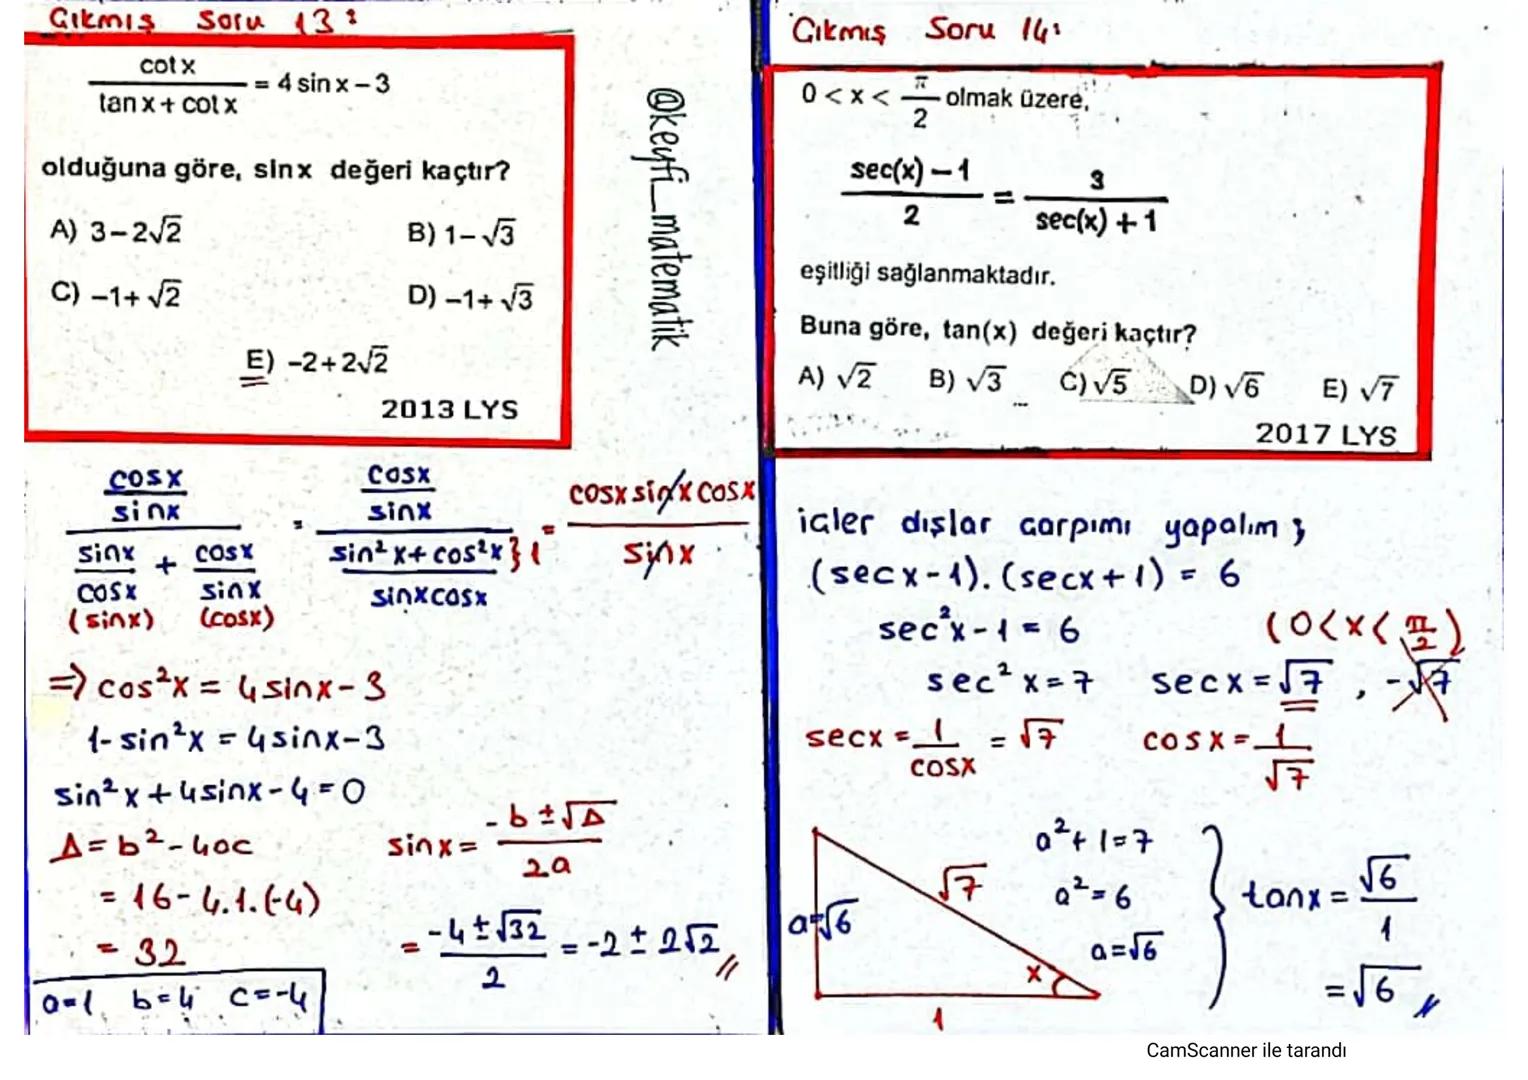 Çıkmış Soru 13:
cot x / (tan x + cot x) = 4 sin x − 3
olduğuna göre, sin x değeri kaçtır?
A) 3−2√2 B) 1−√3
C) −1+√2 D) −1+√3
E) −2+2√2
2013 LYS
@keyfi_matematik
(cosx/sinx) / (sinx/cosx + cosx/sinx) = (cosx/sinx) / ((sin²x+cos²x)/(sinxcosx)) } 1 = cosx sinx cosx / sinx
(sinx) (cosx)
⇒ cos²x = 4sinx−3
1−sin²x = 4sinx−3
sin²x+4sinx−4=0
Δ=b²−4ac
= 16−4.1.(−4)
= 32
a=1 b=4 c=−4
sinx = (−b±√Δ) / 2a
= (−4±√32) / 2 = −2±2√2 //
Çıkmış Soru 14:
0 < x < π/2 olmak üzere,
(sec(x) − 1) / 2 = 3 / (sec(x) + 1)
eşitliği sağlanmaktadır.
Buna göre, tan(x) değeri kaçtır?
A) √2 B) √3 C) √5 D) √6 E) √7
2017 LYS
içler dışlar çarpımı yapalım ;
(secx−1).(secx+1) = 6
sec²x−1 = 6 (0<x<π/2)
sec²x=7 secx=√7 , −√7
secx = 1/cosx = √7 cosx = 1/√7
a=√6
√7
x
1
a²+1=7
a²=6
a=√6
tanx = √6/1
=√6 //
CamScanner ile tarandı